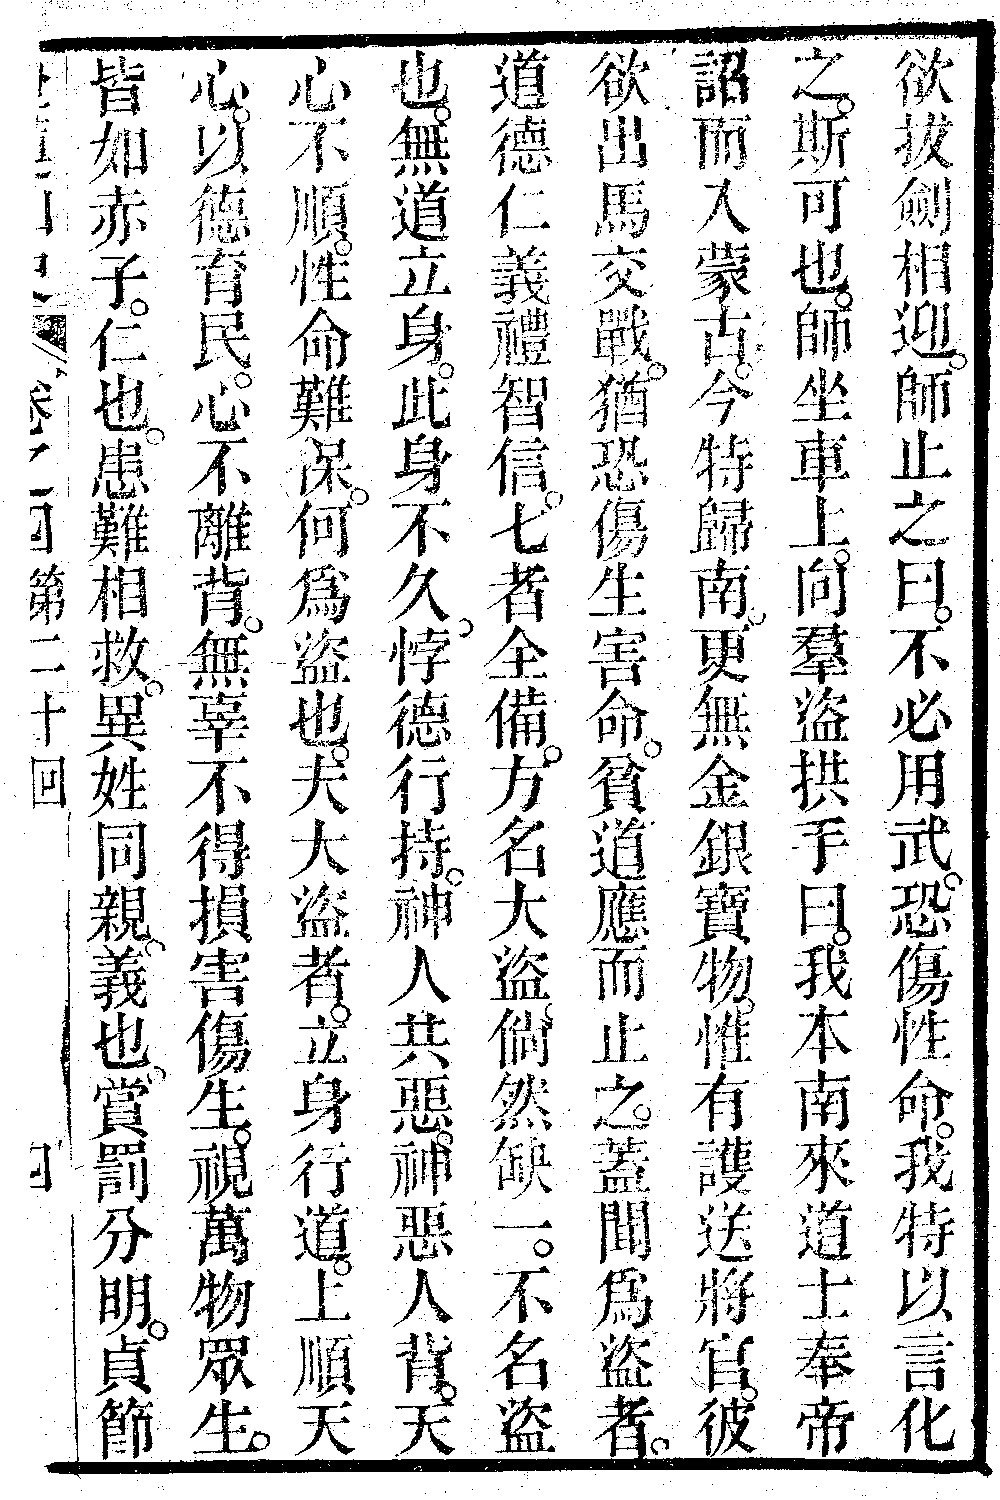 欲拔劍相迎。師止之曰。不必用武。恐傷性命。我特以言化
之。斯可也。師坐車上。向羣盜拱手曰。我本南來道士奉帝
詔而入蒙古。今特歸南。更無金銀寶物。惟有護送將官。彼
欲出馬交戰。猶恐傷生害命。貧道應而止之。蓋聞爲盜者。
道德仁義禮智信。七者全備。方名大盜。倘然缺一。不名盜
也。無道立身。此身不久。悖德行持。神人共惡。神惡人背。天
心不順。性命難保。何爲盜也。夫大盜者。立身行道。上順天
心。以德育民。心不離背。無辜不得損害傷生。視萬物眾生。
皆如赤子。仁也。患難相救。異姓同親。義也。賞罰分明。貞節
卷之四第二十回 四